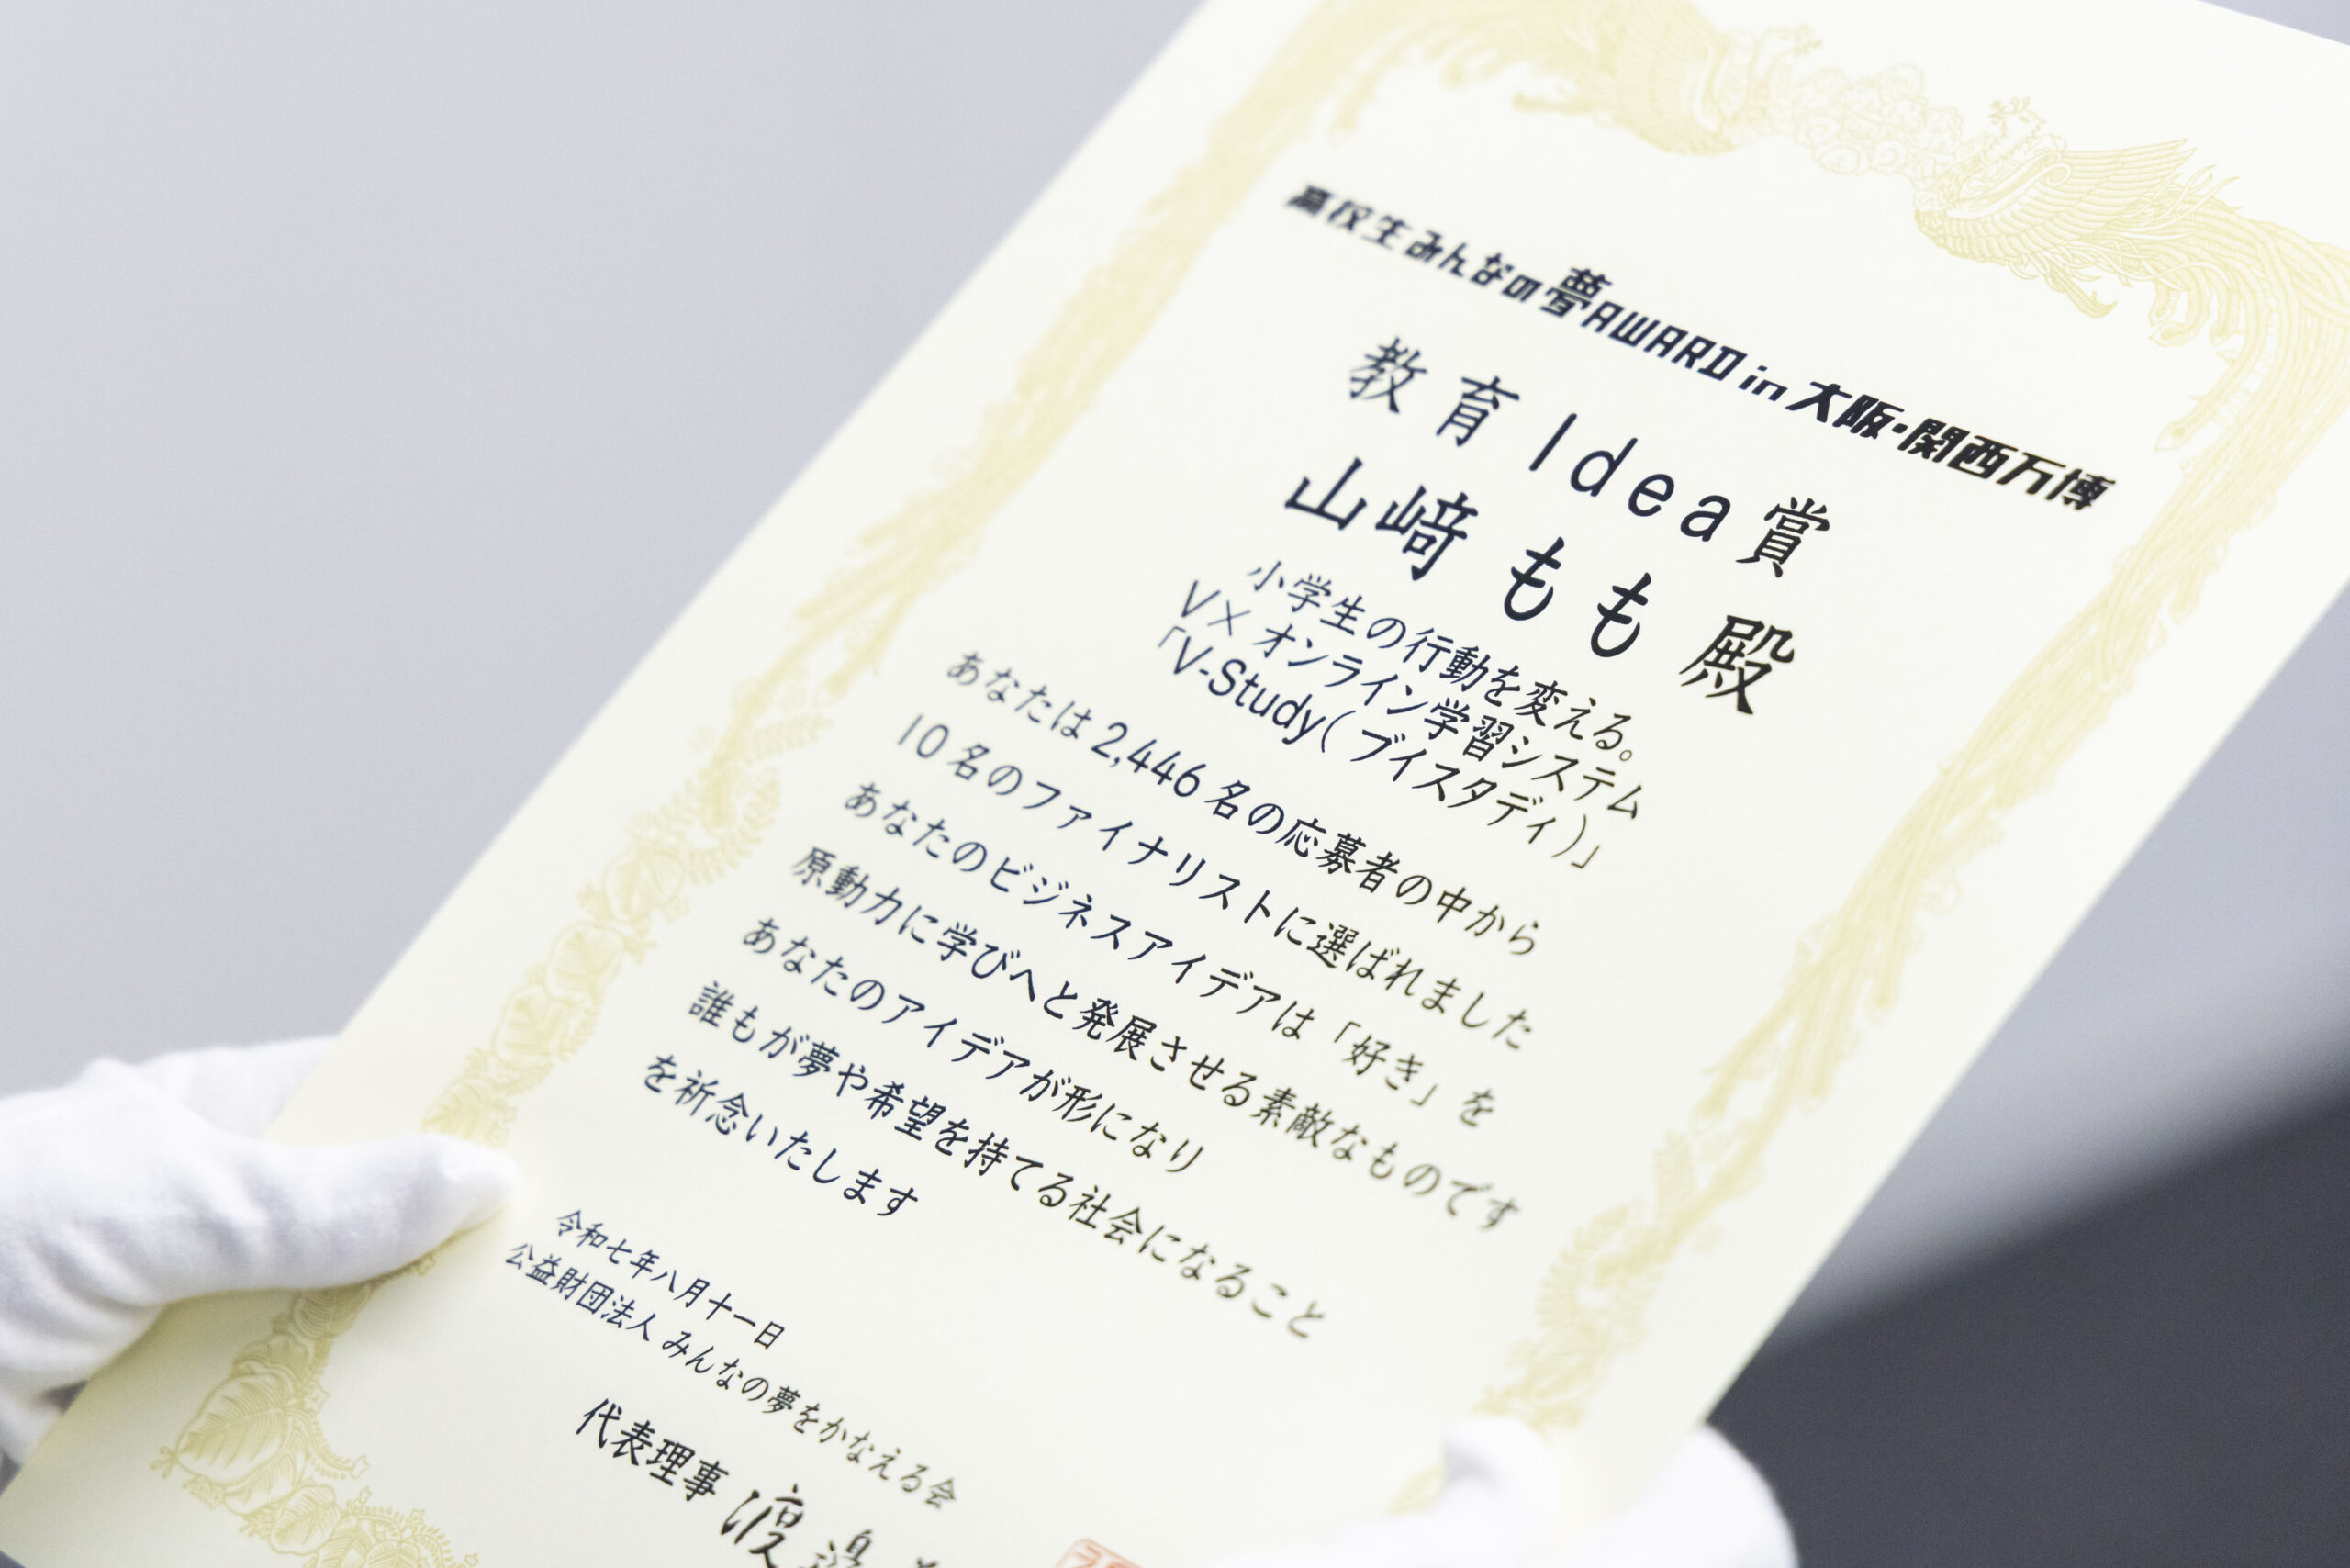 高校生みんなの夢AWARD in 大阪・関西万博
教育Idea賞
山﨑もも 殿
小学生の行動を変える。
V× オンライン学習システム
「V-Study(ブイスタディ)」
あなたは2,446名の応募者の中から
10名のファイナリストに選ばれました
あなたのビジネスアイデアは「好き」を
原動力に学びへと発展させる素敵なものです
あなたのアイデアが形になり
誰もが夢や希望を持てる社会になること
を祈念いたします
令和七年八月十一日
公益財団法人 みんなの夢をかなえる会
代表理事 渡邉